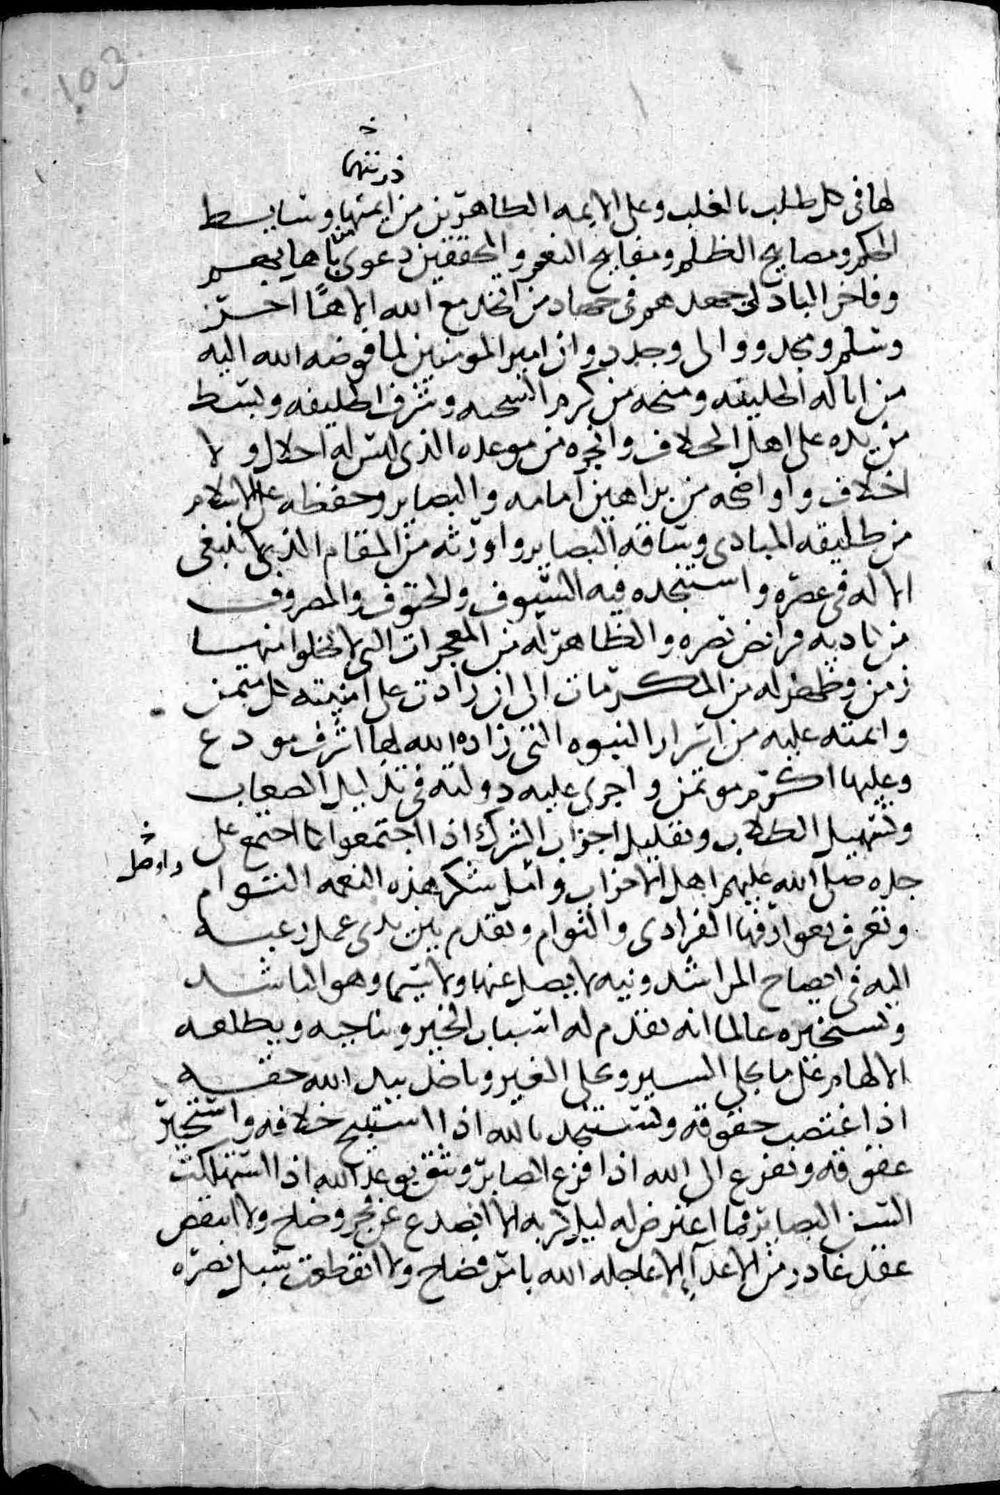 103
ذريتهما
لها في كل طلب بالغلب وعلى الايمه الطاهرين من ايمتها وسايسط
الحكم ومصابيح الظلم ومفاتيح النعم والمحققين دعوى
وفاخر المباد لي جمعد هم في جهاد من اتخذ مع الله الاهًا اخر
وسلم ومجد ووالى وجدد وان امير المومنين لما فوضه الله اليه
من اياله الخليقه ومنحه من كرم السجيه وشرف الخليقه وبسط
من يده على اهل الخلاف وانجزه من موعده الذي ليس له اخلال ولا
اخلاف واوضحه من براهين امامه والبصاير وحفظه على الاسلام
من طليقه المبادي وساقه البصاير واورثه من المقام الذي لا ينبغي
الا له في عصره واستنجده فيه السيوف والحتوف والصروف
من تاديه فرايض نصره والظاهر له من المعجزات التي لا يخلوا منها
زمن وظهر له من المكرمات الى ان زادت على امنيته كل متمن
وايمنه عليه من اسرار النبوه التي زاده الله لها اشرف مودع
وعليها اكرم موتمن واجرى عليه دولته في تذليل الصعاب
وتسهيل الطلاب وتفليل احزاب الشرك اذا اجتمعوا كما اجتمع على
جده صلى الله عليهم اهل الاحزاب واصل شكر هذه النعمه التوام
واوصل
ويعرف بعوارفها الفرادى والتوام ويقدم بين يدي عمل رغبه
اليه في ايضاح المراشد ونيه لا يضل عنها ولا سيما وهو الناشد
ويستخيره عالما انه يقدم له اسباب الخير ويناجيه ويطلعه
الالهام على ما يجلي السير ويجلي الغير وياخذ بيد الله حقه
اذا اغتصب حقوقه ويستنجد بالله اذا استبيح خلافه واستجيز
عقوقه ويفزع الى الله اذا فزع الصابر ويثق بوعد الله اذا استهلكت
الشبه البصاير فما اعترض له ليل كربه الا انصدع عن فجر وضاح ولا انتقض
عقد غادر من الاعدا الا عاجله الله بامر فضاح ولا انقطعت سبل نصره